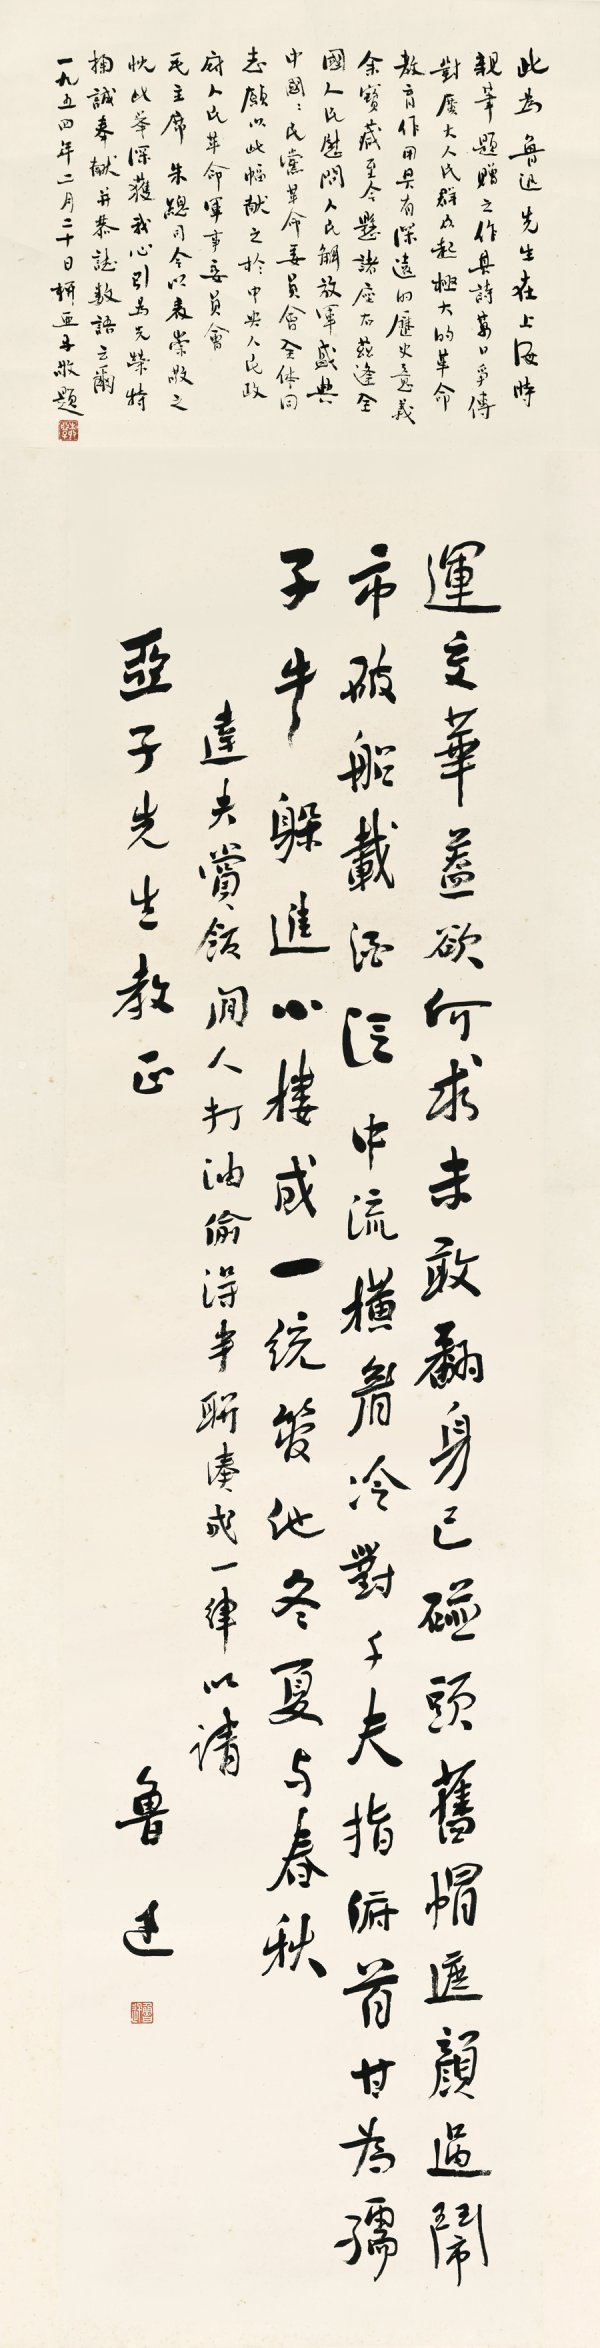 此為魯迅先生在上海時
親筆題贈之作其詩萬口爭傳
對廣大人民群眾起極大的革命
教育作用具有深遠的歷史意義
余寶藏至今懸諸座右茲逢全
國人民慰問人民解放軍盛典
中國〻民黨革命委員會全体同
志願以此幅献之於中央人民政
府人民革命軍事委員會
毛主席 朱總司令以表崇敬之
忱此舉深獲我心引為光榮特
掬誠奉献并恭誌數語云爾
一九五四年二月二十日柳亞子敬題
運交華蓋欲何求未敢翻身已碰頭舊帽遮顏過鬧
市破船載酒泛中流橫眉冷對千夫指俯首甘為孺
子牛躲進小樓成一統管他冬夏与春秋
達夫賞飯閒人打油偷得半聯湊成一律以請
亞子先生教正
魯迅